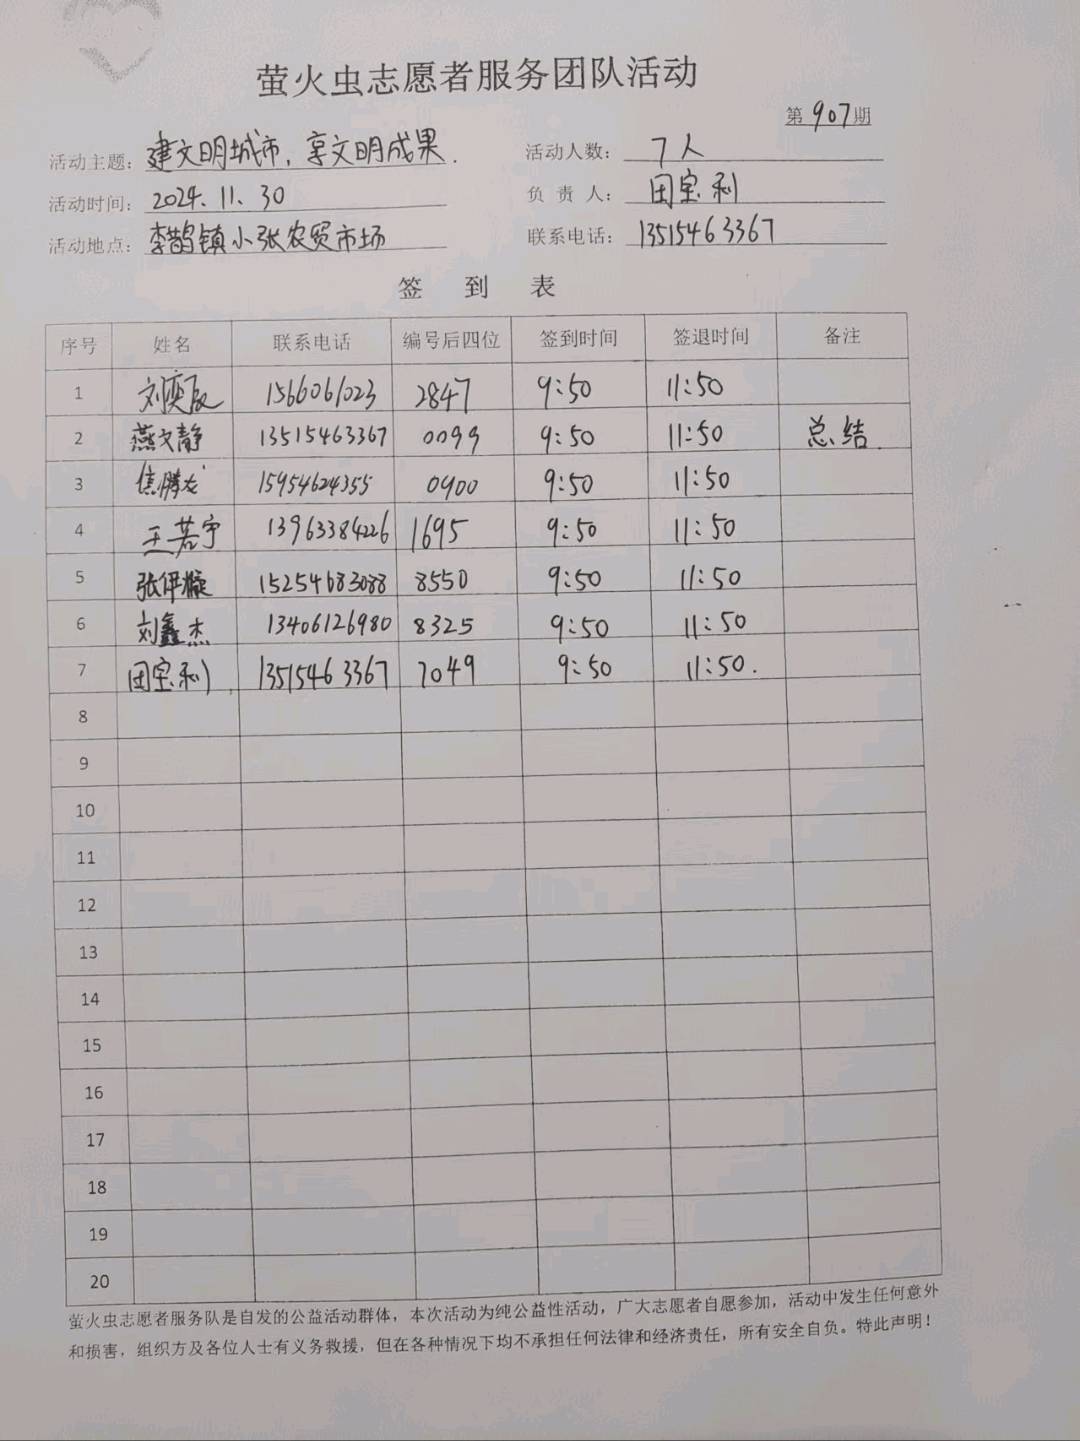 萤火虫志愿者服务团队活动
第907期
活动主题：建文明城市，享文明成果．
活动人数：7人
活动时间：2024.11.30
负责人：田宝利
活动地点：李鹊镇小张农贸市场
联系电话：13515463367
签到表
序号 姓名 联系电话 编号后四位 签到时间 签退时间 备注
1 刘奕辰 1566061023 2847 9:50 11:50
2 燕文静 13515463367 0099 9:50 11:50 总结.
3 焦腾龙 15954624355 0900 9:50 11:50
4 王若宇 13963384226 1695 9:50 11:50
5 张伊 15254683088 8550 9:50 11:50
6 刘鑫杰 13406126980 8325 9:50 11:50
7 田宝利 13515463367 7049 9:50 11:50.
8
9
10
11
12
13
14
15
16
17
18
19
20
萤火虫志愿者服务队是自发的公益活动群体，本次活动为纯公益性活动，广大志愿者自愿参加，活动中发生任何意外
和损害，组织方及各位人士有义务救援，但在各种情况下均不承担任何法律和经济责任，所有安全自负。特此声明！